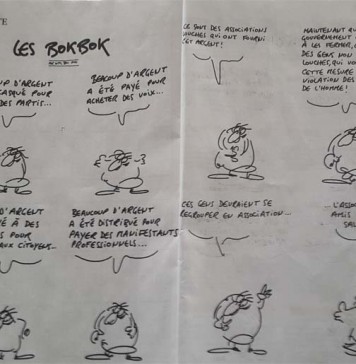 LES BOKBOK
D'ARGENT
CADQUÉ POUR
DES PARTIS...
BEACOUP D'ARGENT
A ÉTÉ PAYÉ POUR
ACHETER DES VOIX...
CE SONT DES ASSOCIATIONS
LOUCHES QUI ONT FOURNI
CET ARGENT!
MAINTENANT QU
GOUVERNEMENT
À LES FERMER,
DES GENS NON
LOUCHES, QUI VO
CETTE MESURE
VIOLATION DES
DE L'HOMME!
D'ARGENT
À DES
POUR
AUX CITOYENS...
BEAUCOUP D'ARGENT
A ÉTÉ DISTRIBUÉ POUR
PAYER DES MANIFESTANTS
PROFESSIONNELS...
CES GENS DEVRAIENT SE
REGROUPER EN ASSOCIATION...
L'ASSO
AMIS